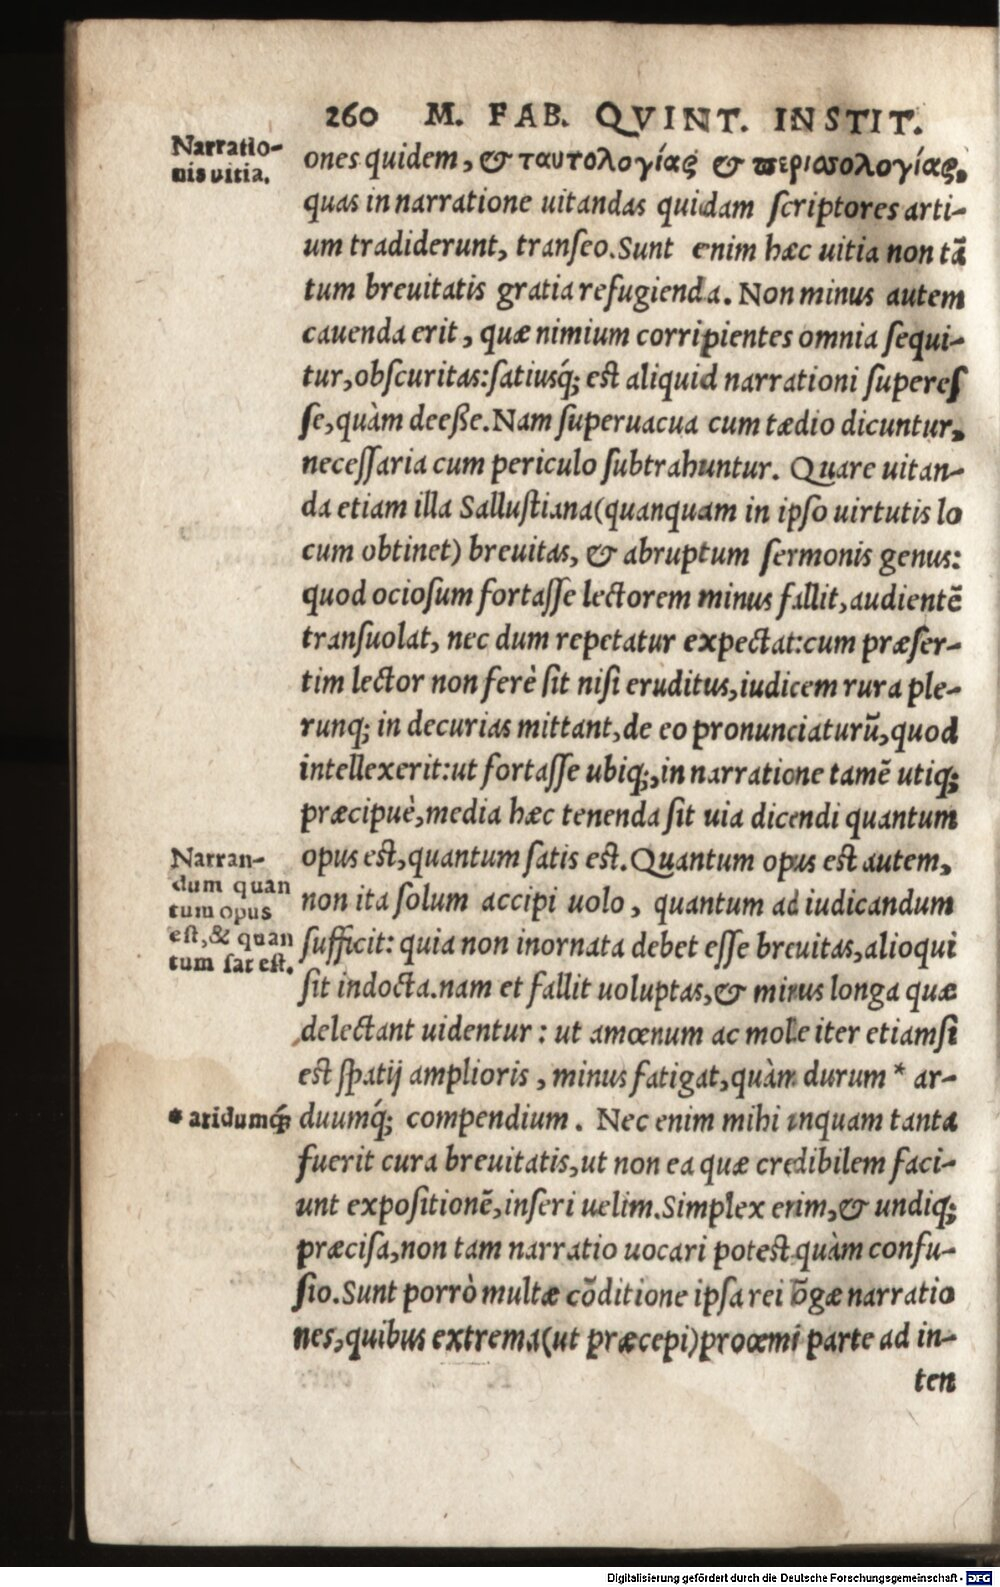 260 M. FAB. QVINT. INSTIT.
Narratio-
nis uitia.
ones quidem, & ταυτολογίας & περισσολογίας,
quas in narratione uitandas quidam scriptores arti-
um tradiderunt, transeo. Sunt enim hæc uitia non tã
tum breuitatis gratia refugienda. Non minus autem
cauenda erit, quæ nimium corripientes omnia sequi-
tur, obscuritas: satiusq́; est aliquid narrationi superes
se, quàm deeße. Nam superuacua cum tædio dicuntur,
necessaria cum periculo subtrahuntur. Quare uitan-
da etiam illa Sallustiana (quanquam in ipso uirtutis lo
cum obtinet) breuitas, & abruptum sermonis genus:
quod ociosum fortasse lectorem minus fallit, audientẽ
transuolat, nec dum repetatur expectat: cum præser-
tim lector non ferè sit nisi eruditus, iudicem rura ple-
runq; in decurias mittant, de eo pronunciaturũ, quod
intellexerit: ut fortasse ubiq;, in narratione tamẽ utiq;
præcipuè, media hæc tenenda sit uia dicendi quantum
opus est, quantum satis est. Quantum opus est autem,
Narran-
dum quan
tum opus
est, & quan
tum sat est.
non ita solum accipi uolo, quantum ad iudicandum
sufficit: quia non inornata debet esse breuitas, alioqui
sit indocta. nam et fallit uoluptas, & minus longa quæ
delectant uidentur: ut amœnum ac molle iter etiamsi
est spatij amplioris, minus fatigat, quàm durum * ar-
* aridumq́;
duumq́; compendium. Nec enim mihi inquam tanta
fuerit cura breuitatis, ut non ea quæ credibilem faci-
unt expositionẽ, inseri uelim. Simplex enim, & undiq;
præcisa, non tam narratio uocari potest quàm confu-
sio. Sunt porrò multæ cõditione ipsa rei lõgæ narratio
nes, quibus extrema (ut præcepi) proœmi parte ad in-
ten
Digitalisierung gefördert durch die Deutsche Forschungsgemeinschaft - DFG